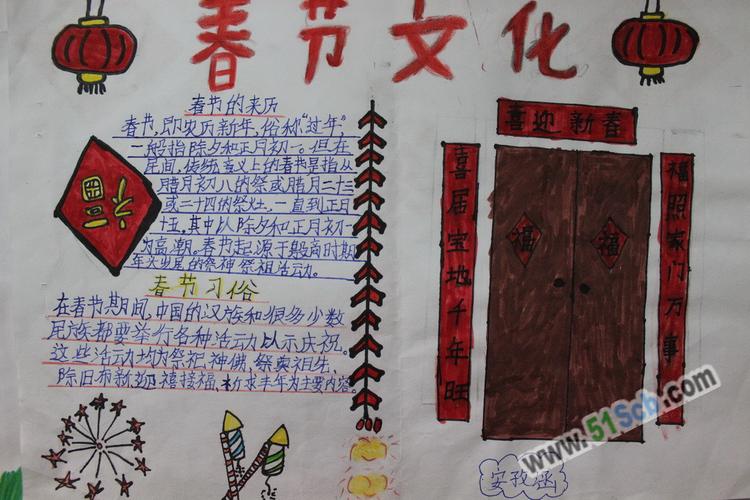 春节文化
春节的来历
春节,即农历新年,俗称“过年”,
一般指除夕和正月初一。但在
民间,传统意义上的春节是指从
腊月初八的腊祭或腊月二十三
或二十四的祭灶,一直到正月
十五,其中以除夕和正月初一
为高潮。春节起源于殷商时期
年头岁尾的祭神祭祖活动。
福
春节习俗
在春节期间,中国的汉族和很多少数
民族都要举行各种活动以示庆祝。
这些活动均为祭祀神佛,祭奠祖先、
除旧布新迎禧接福、祈求丰年为主要内容。
喜迎新春
喜居宝地千年旺
福照家门万事
福
福
安孜涵
www.51Scb.com